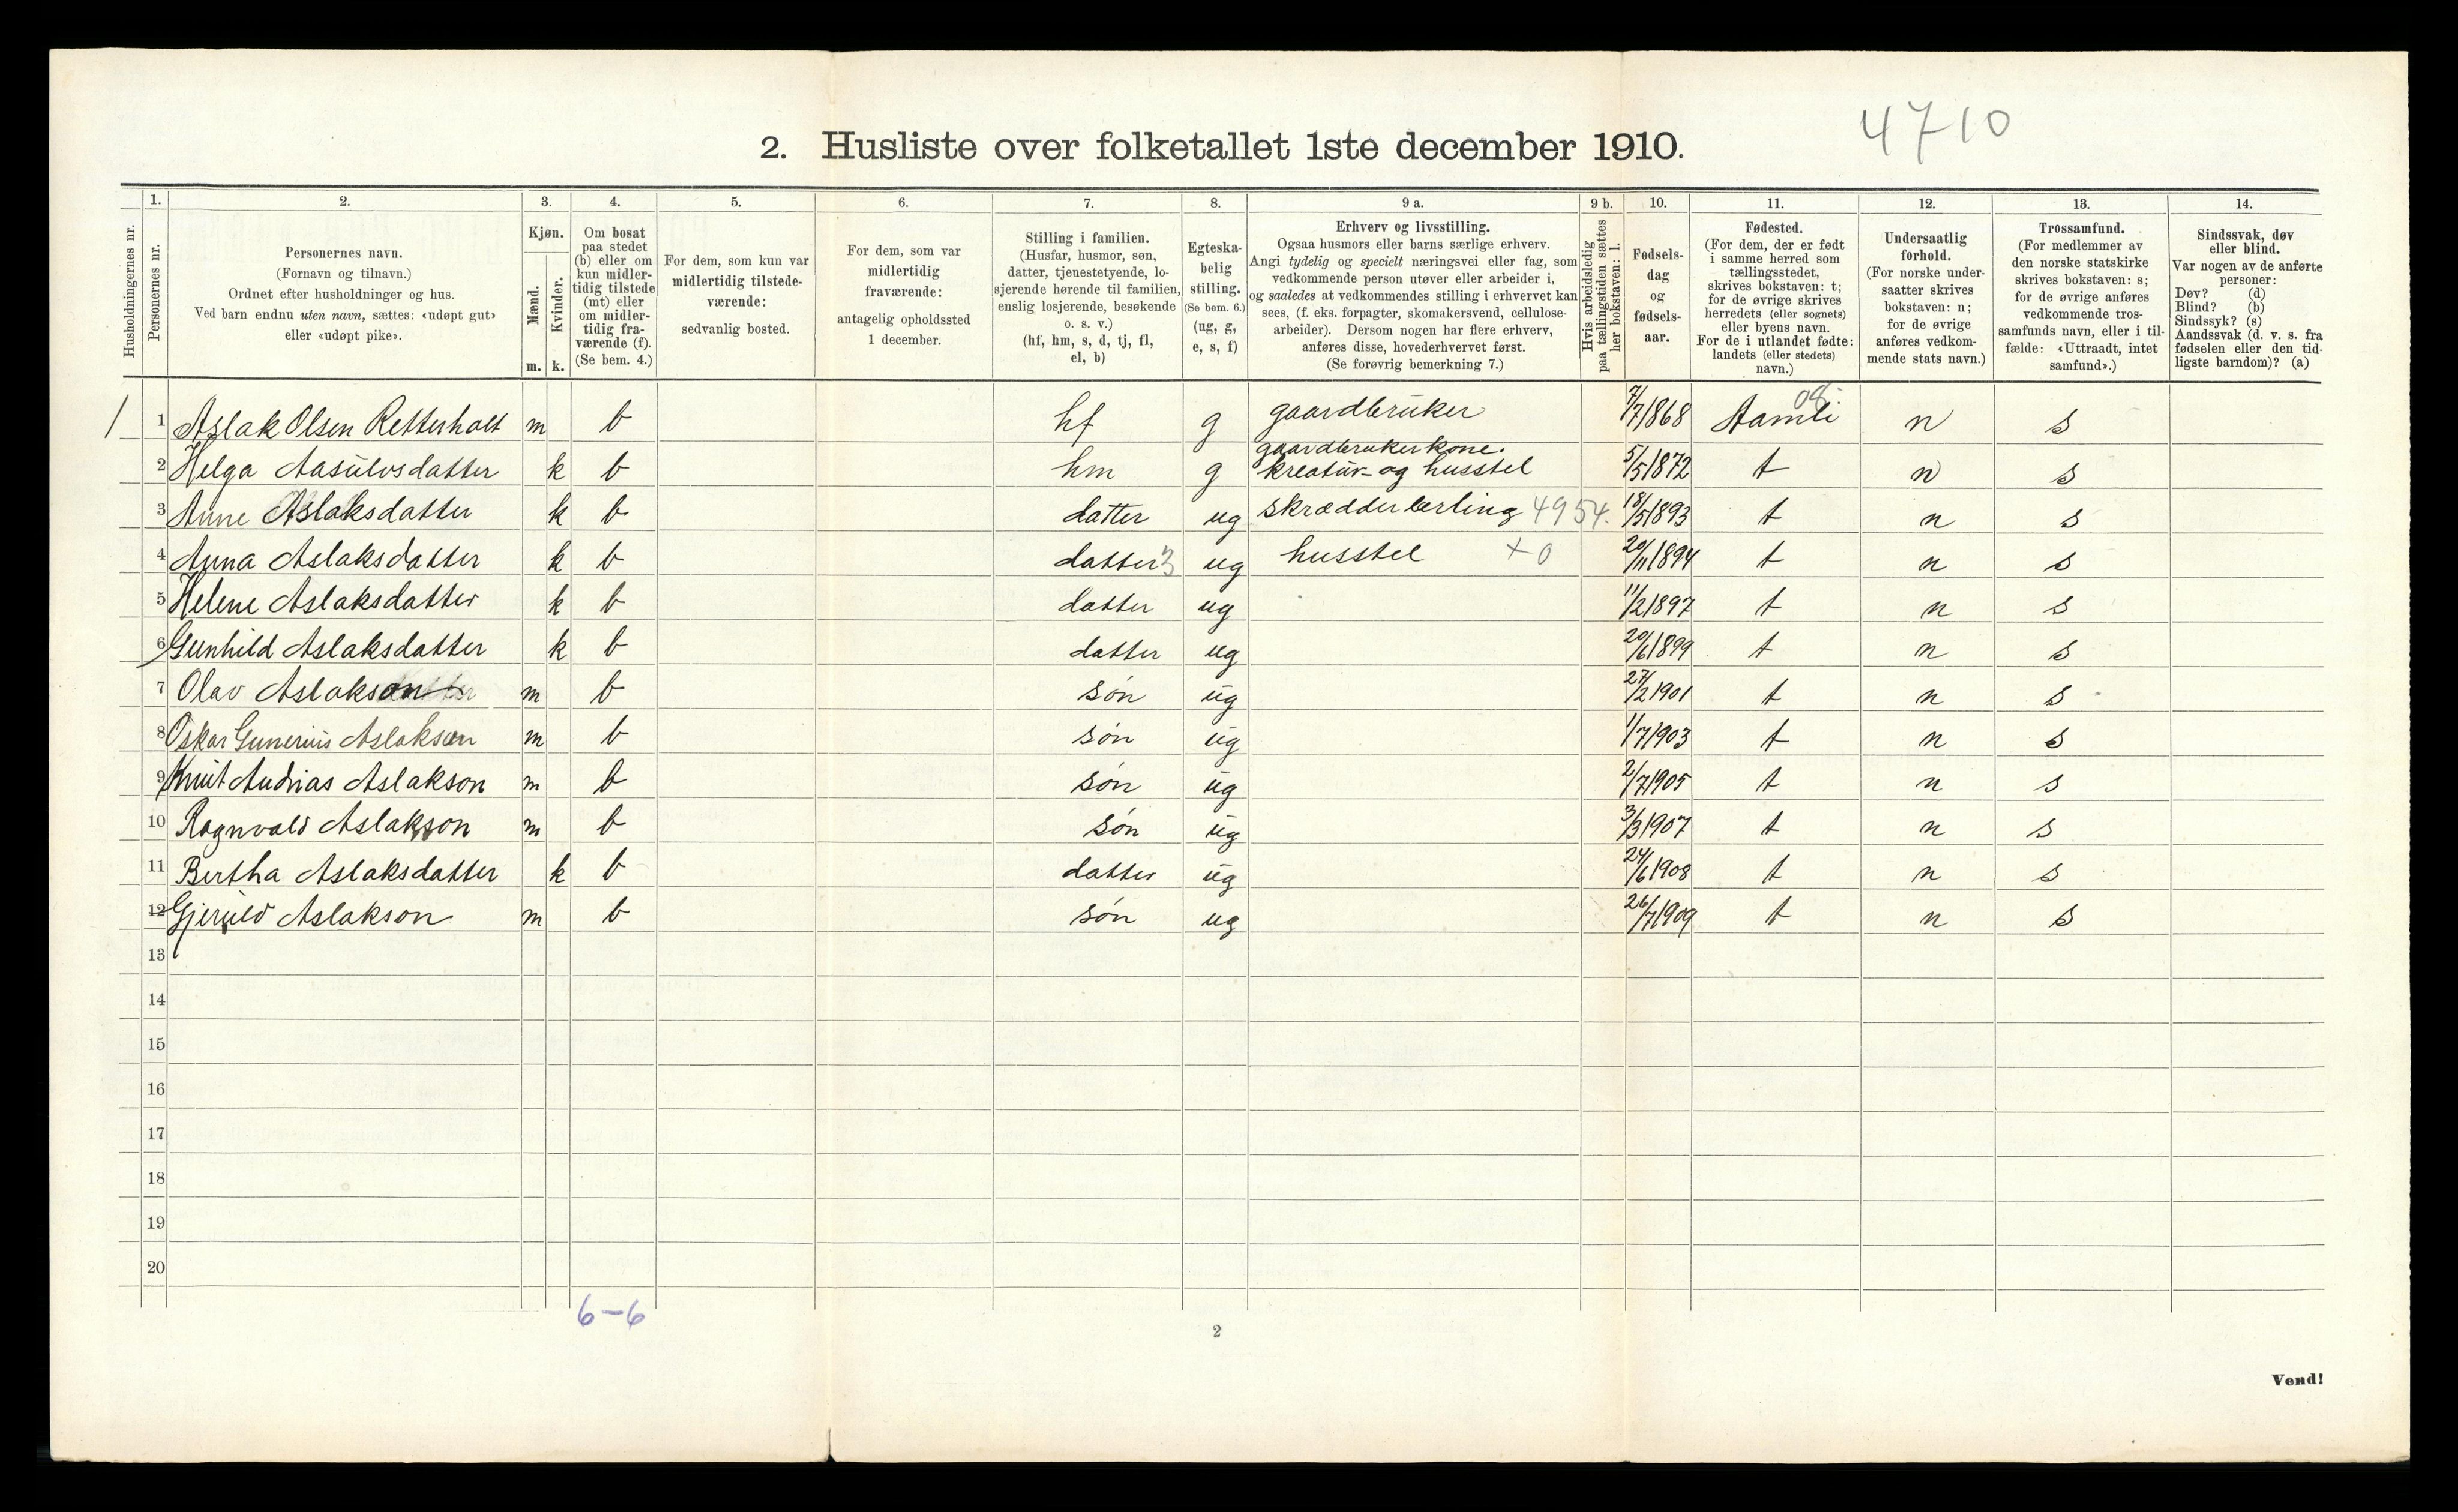 4710
2. Husliste over folketallet 1ste december 1910.
Husholdningernes nr.
1.
Personernes nr.
2.
Personernes navn.
(Fornavn og tilnavn.)
Ordnet efter husholdninger og hus.
Ved barn endnu uten navn, sættes: «udøpt gut»
eller «udøpt pike».
3.
Kjøn.
Mænd.
Kvinder.
m. k.
4.
Om bosat
paa stedet
(b) eller om
kun midler-
tidig tilstede
(mt) eller
om midler-
tidig fra-
værende (f).
(Se bem. 4.)
5.
For dem, som kun var
midlertidig tilstede-
værende:
sedvanlig bosted.
6.
For dem, som var
midlertidig
fraværende:
antagelig opholdssted
1 december.
7.
Stilling i familien.
(Husfar, husmor, søn,
datter, tjenestetyende, lo-
sjerende hørende til familien,
enslig losjerende, besøkende
o. s. v.)
(hf, hm, s, d, tj, fl,
el, b)
8.
Egteska-
belig
stilling.
(Se bem. 6.)
(ug, g,
e, s, f)
9 a.
Erhverv og livsstilling.
Ogsaa husmors eller barns særlige erhverv.
Angi tydelig og specielt næringsvei eller fag, som
vedkommende person utøver eller arbeider i,
og saaledes at vedkommendes stilling i erhvervet kan
sees, (f. eks. forpagter, skomakersvend, cellulose-
arbeider). Dersom nogen har flere erhverv,
anføres disse, hovederhvervet først.
(Se forøvrig bemerkning 7.)
9 b.
Hvis arbeidsledig
paa tællingstiden sættes
her bokstaven: l.
10.
Fødsels-
dag
og
fødsels-
aar.
11.
Fødested.
(For dem, der er født
i samme herred som
tællingsstedet,
skrives bokstaven: t;
for de øvrige skrives
herredets (eller sognets)
eller byens navn.
For de i utlandet fødte:
landets (eller stedets)
navn.)
12.
Undersaatlig
forhold.
(For norske under-
saatter skrives
bokstaven: n;
for de øvrige
anføres vedkom-
mende stats navn.)
13.
Trossamfund.
(For medlemmer av
den norske statskirke
skrives bokstaven: s;
for de øvrige anføres
vedkommende tros-
samfunds navn, eller i til-
fælde: «Uttraadt, intet
samfund».)
14.
Sindssvak, døv
eller blind.
Var nogen av de anførte
personer:
Døv? (d)
Blind? (b)
Sindssyk? (s)
Aandssvak (d. v. s. fra
fødselen eller den tid-
ligste barndom)? (a)
1 1 Aslak Olsen Retterholt m b hf g gaardbruker 7/7 1868 Aamli 08 n s
2 Helga Aasulvsdatter k b hm g gaardbrukerkone. kreatur- og husstel 5/5 1872 t n s
3 Anne Aslaksdatter k b datter ug skrædderlærling 4954. 18/5 1893 t n s
4 Anna Aslaksdatter k b datter 3 ug husstel +0 20/11 1894 t n s
5 Helene Aslaksdatter k b datter ug 11/2 1897 t n s
6 Gunhild Aslaksdatter k b datter ug 20/6 1899 t n s
7 Olav Aslakson m b søn ug 27/2 1901 t n s
8 Oskar Gunerius Aslakson m b søn ug 1/7 1903 t n s
9 Knut Andrias Aslakson m b søn ug 2/7 1905 t n s
10 Ragnvald Aslakson m b søn ug 3/3 1907 t n s
11 Bertha Aslaksdatter k b datter ug 24/6 1908 t n s
12 Gjeruld Aslakson m b søn ug 26/7 1909 t n s
13
14
15
16
17
18
19
20
6-6
2
Vend!